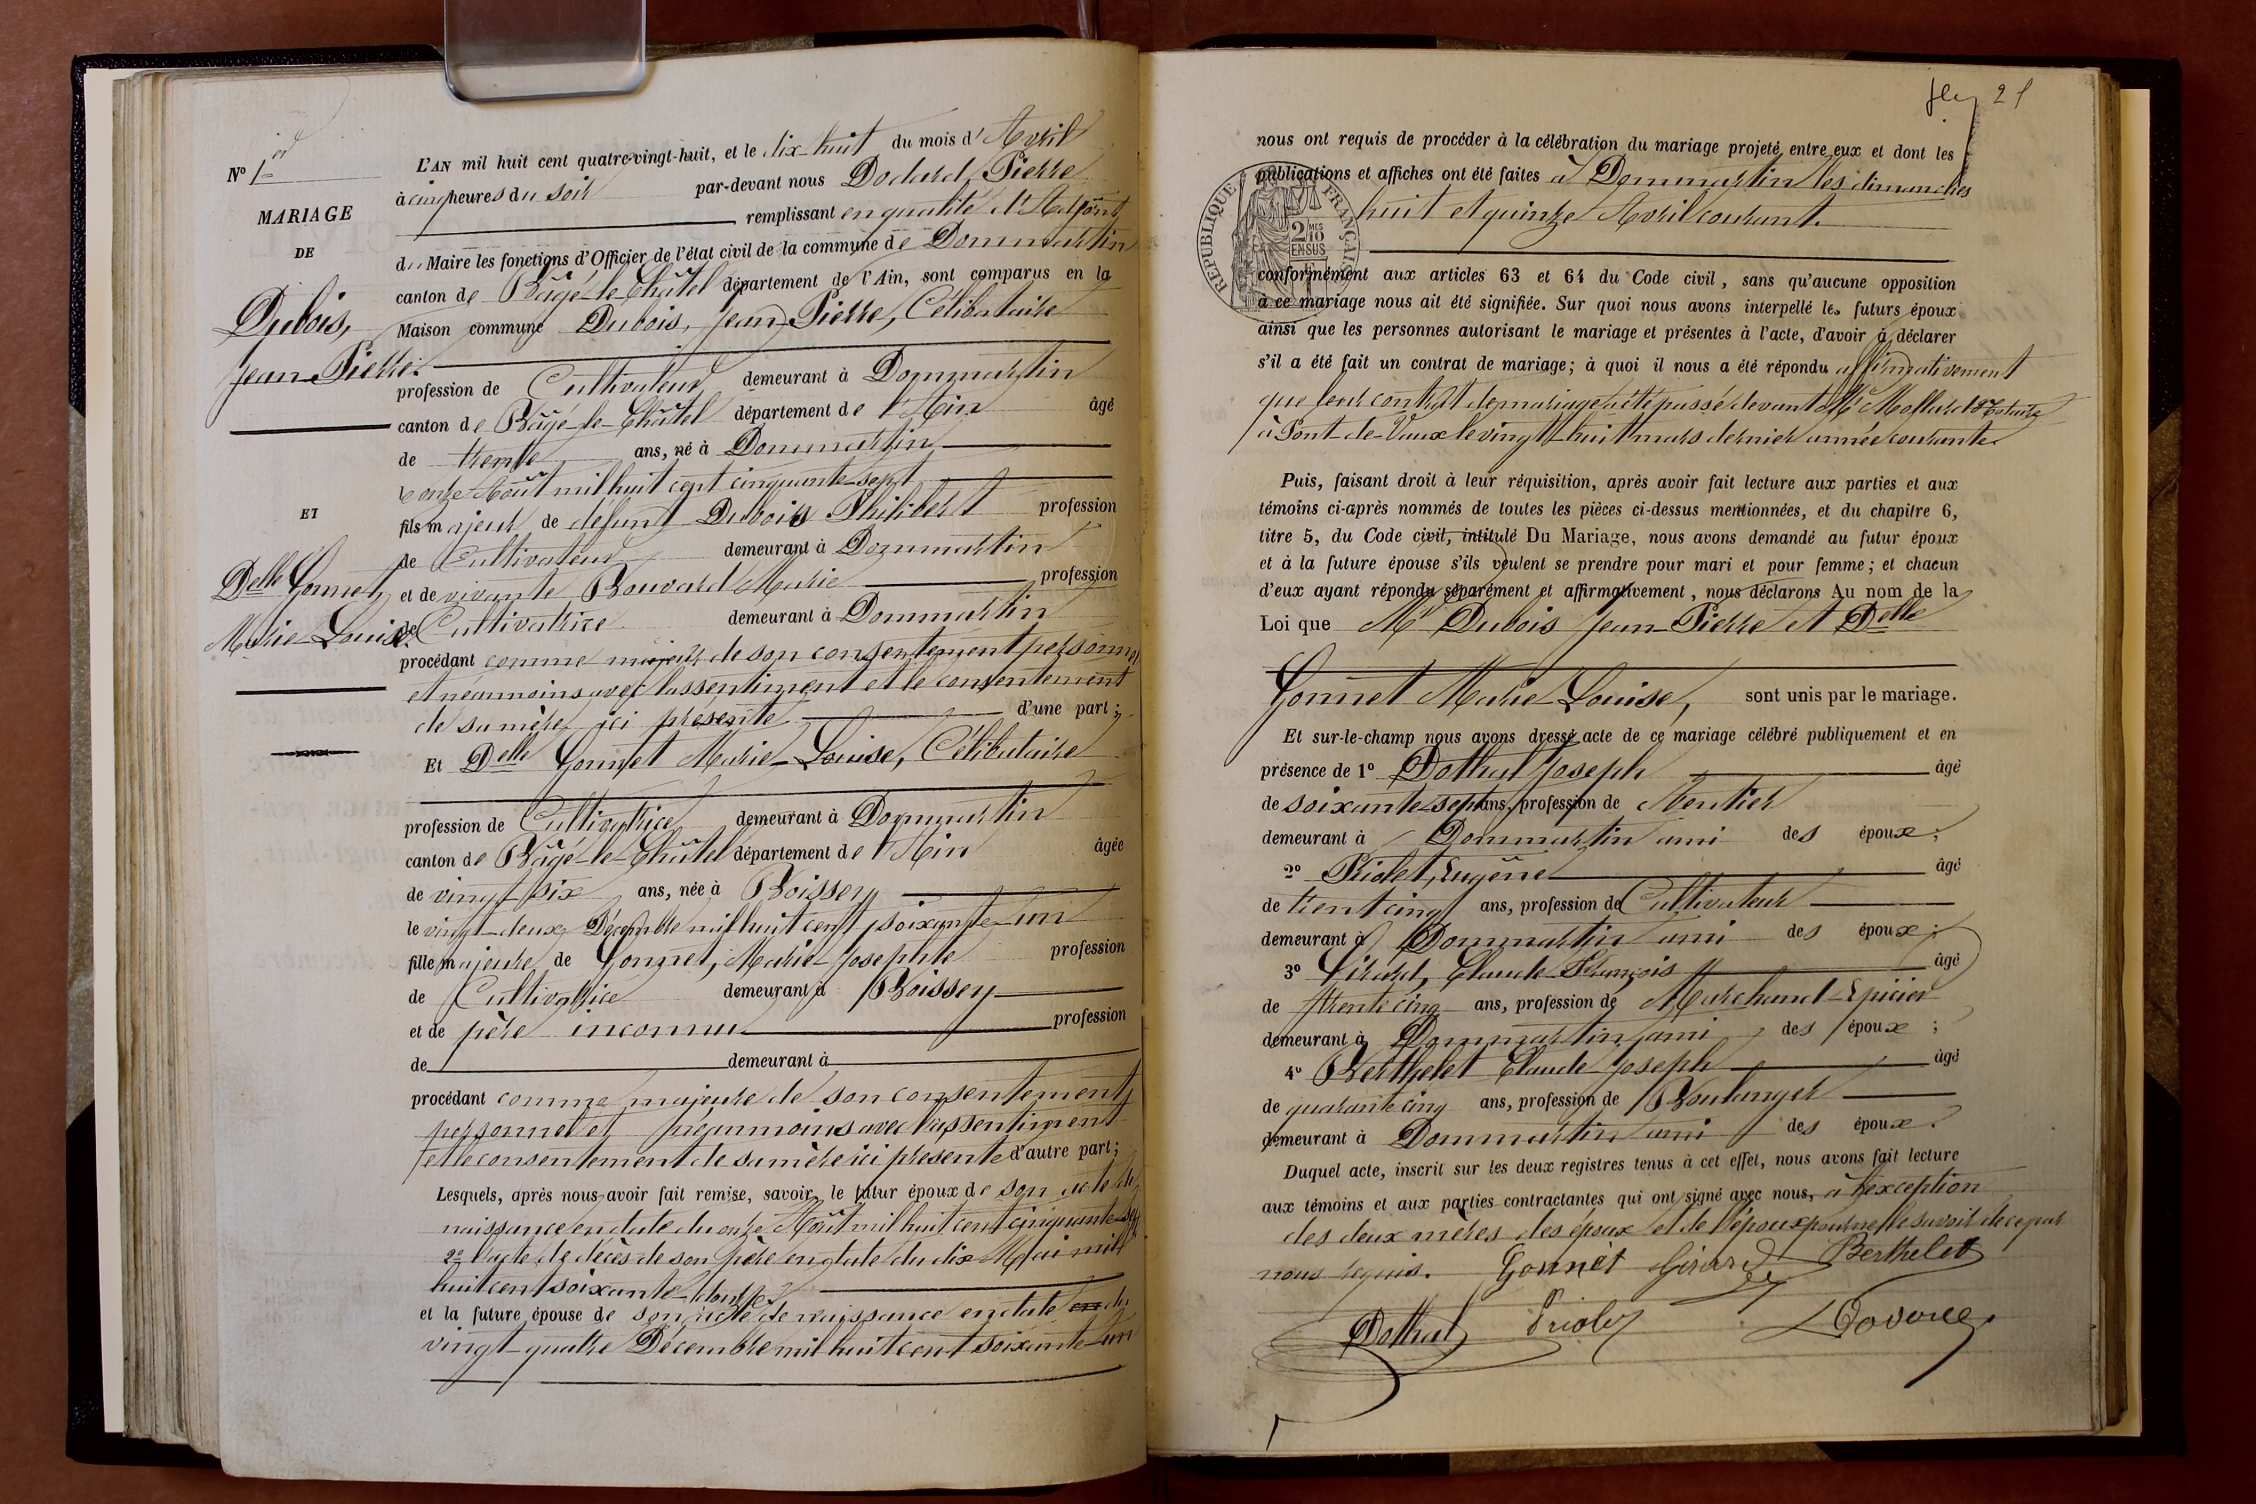 N° 1er
MARIAGE
DE
Dubois,
Jean-Pierre.
ET
Delle Gonnet,
Marie-Louise.
L'AN mil huit cent quatre-vingt-huit, et le dix-huit du mois d'Avril
à cinq heures du soir par-devant nous Dodard, Pierre
remplissant en qualité d'Adjoint
du Maire les fonctions d'Officier de l'état civil de la commune de Dommartin
canton de Bâgé-le-Châtel département de l'Ain, sont comparus en la
Maison commune Dubois, Jean-Pierre, Célibataire
profession de Cultivateur demeurant à Dommartin
canton de Bâgé-le-Châtel département de l'Ain âgé
de trente ans, né à Dommartin
le onze Août mil huit cent cinquante-sept
fils majeur de défunt Dubois Philibert profession
de Cultivateur demeurant à Dommartin
et de vivante Bouvard Marie profession
de Cultivatrice demeurant à Dommartin
procédant comme majeur de son consentement personnel
et néanmoins avec l'assentiment et le consentement
de sa mère ici présente d'une part;
Et Delle Gonnet Marie-Louise, Célibataire
profession de Cultivatrice demeurant à Dommartin
canton de Bâgé-le-Châtel département de l'Ain âgée
de vingt-six ans, née à Boissey
le vingt-deux Décembre mil huit cent soixante-un
fille majeure de Gonnet, Marie-Josephte profession
de Cultivatrice demeurant à Boissey
et de père inconnu profession
de demeurant à
procédant comme majeure de son consentement
personnel et néanmoins avec l'assentiment
et le consentement de sa mère ici présente d'autre part;
Lesquels, après nous avoir fait remise, savoir, le futur époux de son acte de
naissance en date du onze Août mil huit cent cinquante-sept
2° l'acte de décès de son père en date du dix Mai mil
huit cent soixante-douze
et la future épouse de son acte de naissance en date en du
vingt-quatre Décembre mil huit cent soixante-un
21
nous ont requis de procéder à la célébration du mariage projeté entre eux et dont les
publications et affiches ont été faites à Dommartin les dimanches
huit et quinze Avril courant.
RÉPUBLIQUE FRANÇAISE
2/10 MES
EN SUS
conformément aux articles 63 et 64 du Code civil, sans qu'aucune opposition
à ce mariage nous ait été signifiée. Sur quoi nous avons interpellé les futurs époux
ainsi que les personnes autorisant le mariage et présentes à l'acte, d'avoir à déclarer
s'il a été fait un contrat de mariage; à quoi il nous a été répondu affirmativement
que leur contrat de mariage a été passé devant Me Mollard Notaire
à Pont-de-Vaux le vingt-huit mars dernier année courante.
Puis, faisant droit à leur réquisition, après avoir fait lecture aux parties et aux
témoins ci-après nommés de toutes les pièces ci-dessus mentionnées, et du chapitre 6,
titre 5, du Code civil, intitulé Du Mariage, nous avons demandé au futur époux
et à la future épouse s'ils veulent se prendre pour mari et pour femme; et chacun
d'eux ayant répondu séparément et affirmativement, nous déclarons Au nom de la
Loi que Mr Dubois Jean-Pierre et Delle
Gonnet Marie-Louise, sont unis par le mariage.
Et sur-le-champ nous avons dressé acte de ce mariage célébré publiquement et en
présence de 1° Dothal Joseph âgé
de soixante-sept ans, profession de Rentier
demeurant à Dommartin ami des époux;
2° Priolet, Eugène âgé
de trent cinq ans, profession de Cultivateur
demeurant à Dommartin ami des époux;
3° Girard, Claude-François âgé
de trente cinq ans, profession de Marchand-Epicier
demeurant à Dommartin ami des époux;
4° Berthelet Claude Joseph âgé
de quarante cinq ans, profession de Boulanger
demeurant à Dommartin ami des époux.
Duquel acte, inscrit sur les deux registres tenus à cet effet, nous avons fait lecture
aux témoins et aux parties contractantes qui ont signé avec nous, à l'exception
des deux mères des époux et de l'époux pour ne le savoir de ce par
nous requis. Gonnet Girard Berthelet
Dothal Priolet